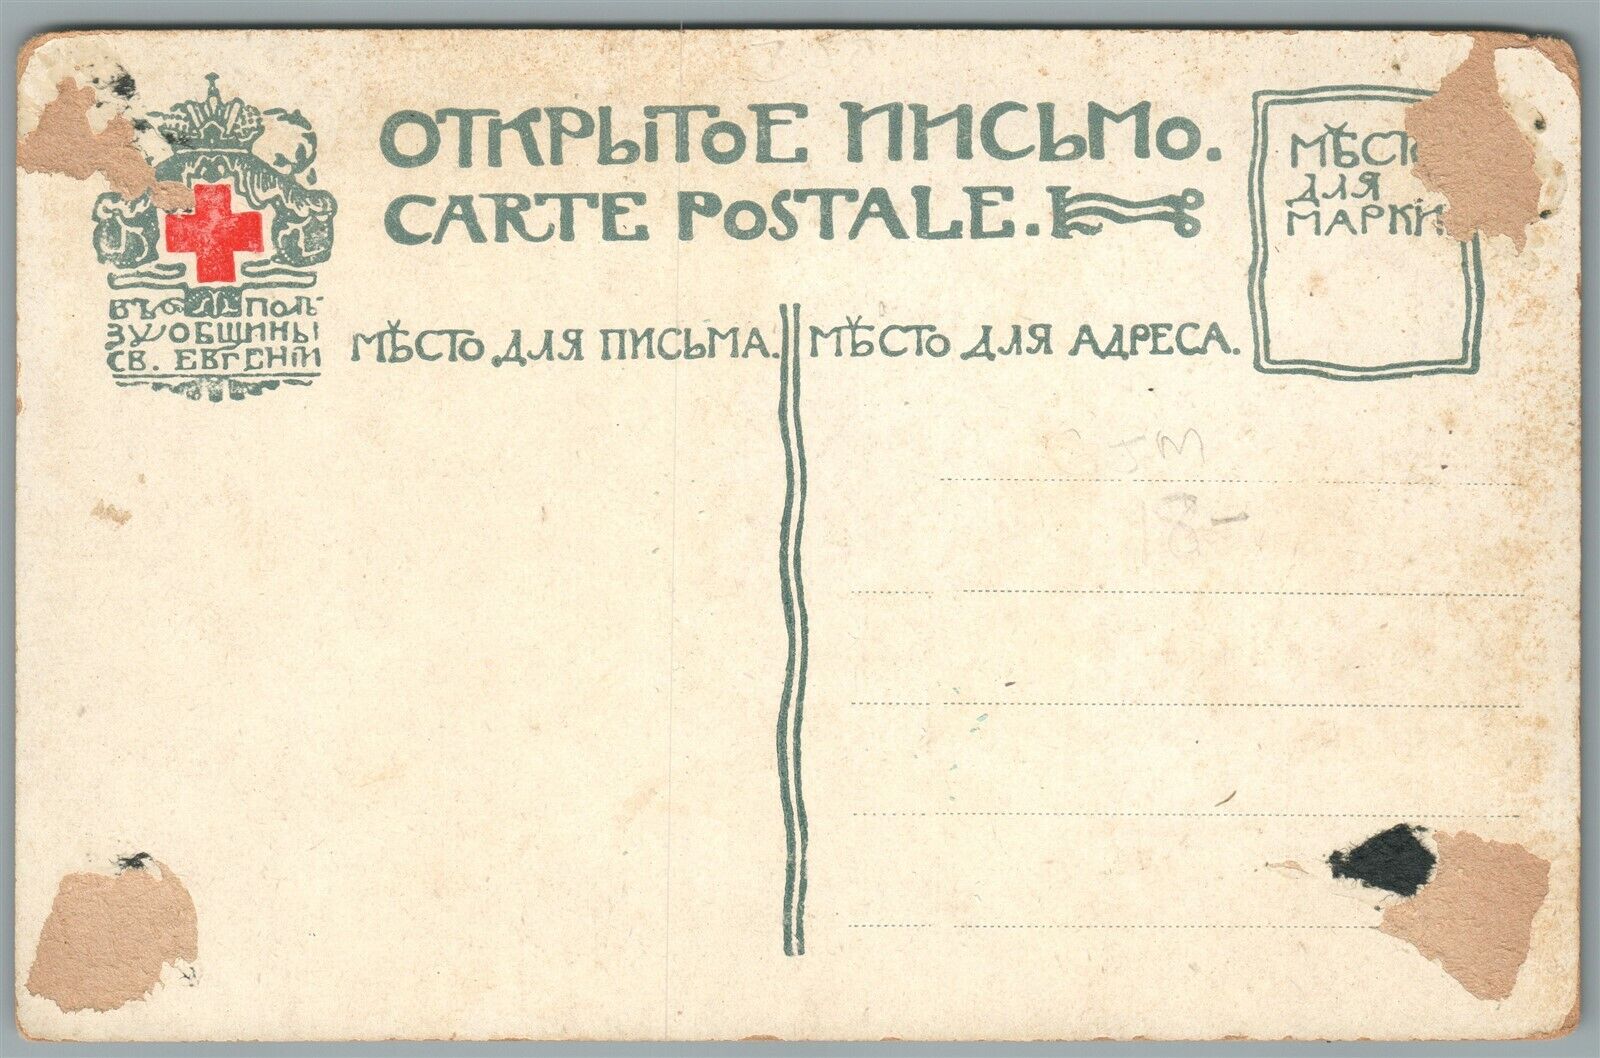 ОТКРЫТОЕ ПИСЬМО.
CARTE POSTALE.
МѢСТО
ДЛЯ
МАРКИ.
ВЪ ПОЛЬ-
ЗУ ОБЩИНЫ
СВ. ЕВГЕНІИ
МѢСТО ДЛЯ ПИСЬМА.
МѢСТО ДЛЯ АДРЕСА.
GJM
18-